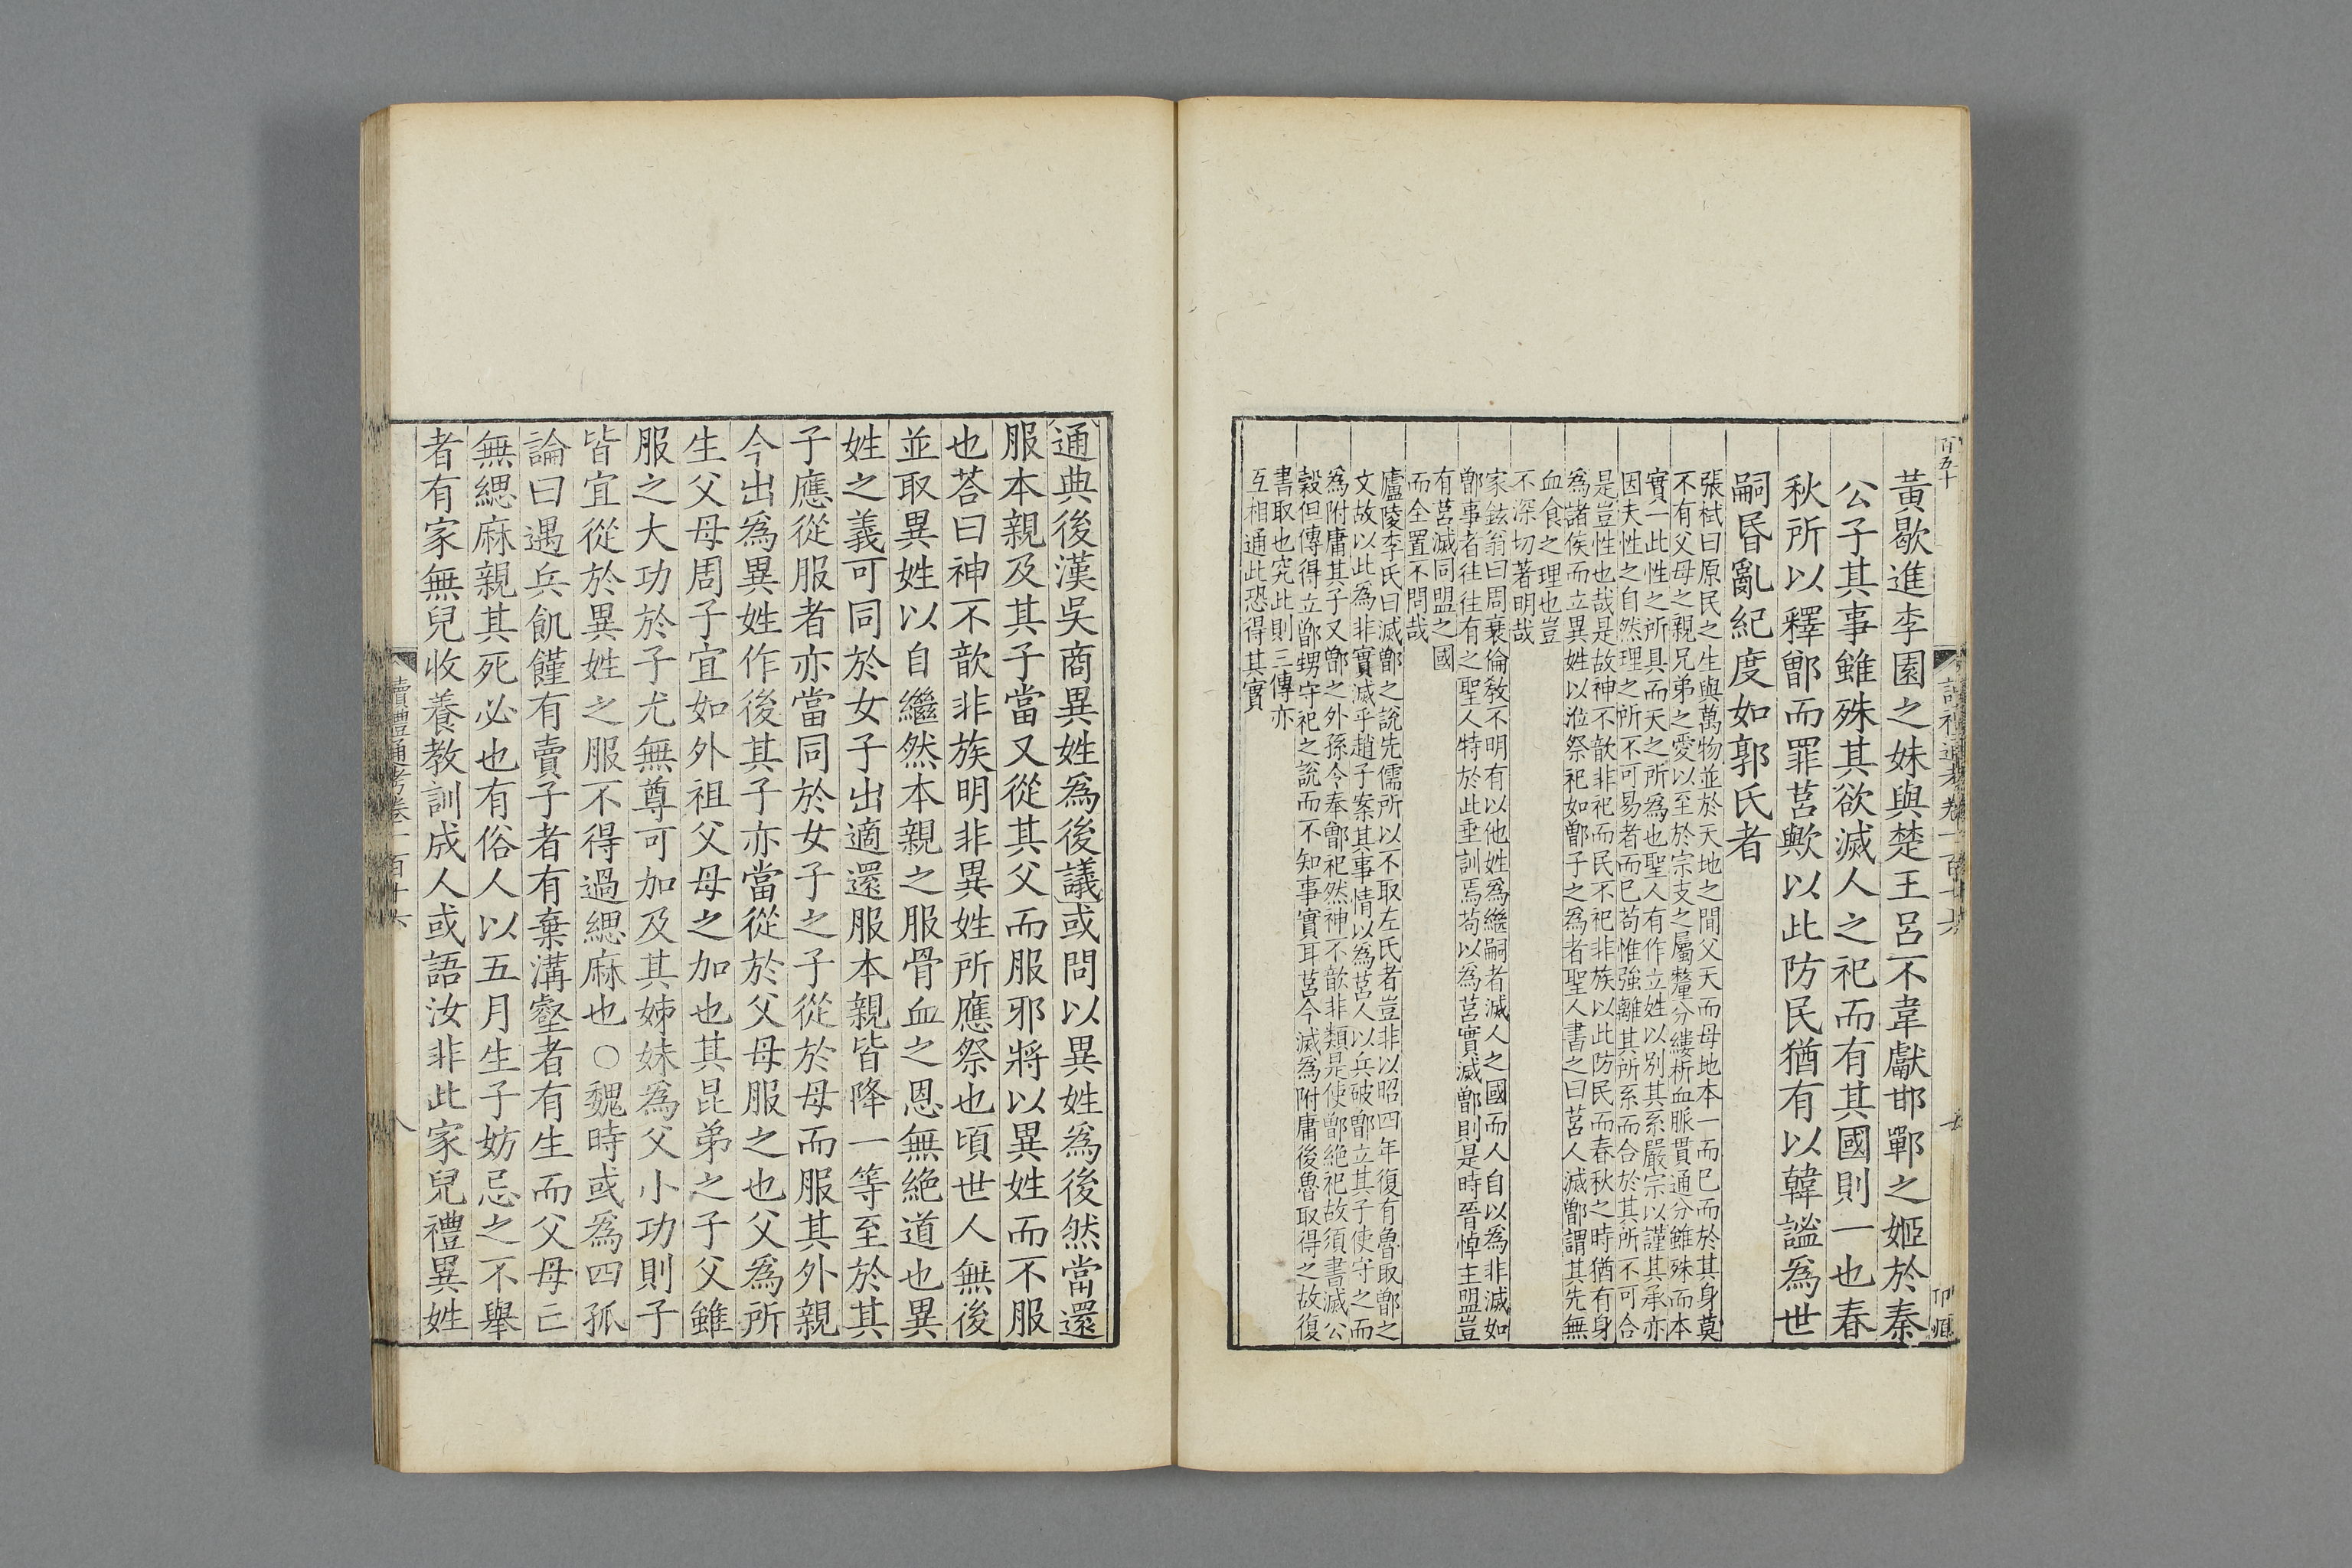 黃歇進李園之妹與楚王呂不韋獻邯鄲之姬於秦
公子其事雖殊其欲滅人之祀而有其國則一也春
秋所以釋鄫而罪莒歟以此防民猶有以韓謐為世
嗣昏亂紀度如郭氏者
張栻曰原民之生與萬物並於天地之間父天而母地本一而已而於其身莫
不有父母之親兄弟之愛以至於宗支之屬釐分縷析血脈貫通分雖殊而本
實一此性之所具而天之所為也聖人有作立姓以別其系嚴宗以謹其承亦
因夫性之自然理之所不可易者而已苟惟強離其所系而合於其所不可合
是豈性也哉是故神不歆非祀而民不祀非族以此防民而春秋之時猶有身
為諸侯而立異姓以涖祭祀如鄫子之為者聖人書之曰莒人滅鄫謂其先無
血食之理也豈
不深切著明哉
家鉉翁曰周衰倫敎不明有以他姓為繼嗣者滅人之國而人自以為非滅如
鄫事者往往有之聖人特於此垂訓焉苟以為莒實滅鄫則是時晉悼主盟豈
有莒滅同盟之國
而全置不問哉
廬陵李氏曰滅鄫之說先儒所以不取左氏者豈非以昭四年復有魯取鄫之
文故以此為非實滅乎趙子案其事情以為莒人以兵破鄫立其子使守之而
為附庸其子又鄫之外孫今奉鄫祀然神不歆非類是使鄫絕祀故須書滅公
穀但傳得立鄫甥守祀之說而不知事實耳莒今滅為附庸後魯取得之故復
書取也究此則三傳亦
互相通此恐得其實
通典後漢吳商異姓為後議或問以異姓為後然當還
服本親及其子當又從其父而服邪將以異姓而不服
也荅曰神不歆非族明非異姓所應祭也頃世人無後
並取異姓以自繼然本親之服骨血之恩無絕道也異
姓之義可同於女子出適還服本親皆降一等至於其
子應從服者亦當同於女子之子從於母而服其外親
今出為異姓作後其子亦當從於父母服之也父為所
生父母周子宜如外祖父母之加也其昆弟之子父雖
服之大功於子尤無尊可加及其姊妹為父小功則子
皆宜從於異姓之服不得過緦麻也○魏時或為四孤
論曰遇兵飢饉有賣子者有棄溝壑者有生而父母亡
無緦麻親其死必也有俗人以五月生子妨忌之不舉
者有家無兒收養教訓成人或語汝非此家兒禮異姓
讀禮通考卷一百十六
八